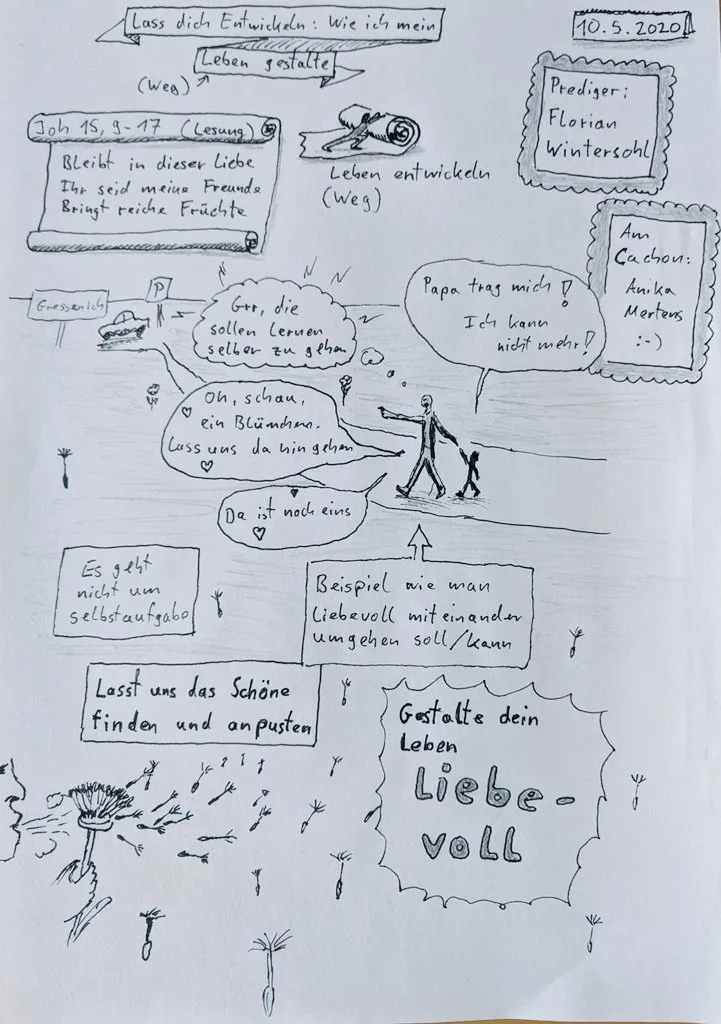 Lass dich Entwickeln: Wie ich mein
Leben gestalte
(Weg)
10.5.2020
Prediger:
Florian
Wintersohl
Joh 15, 9-17 (Lesung)
Bleibt in dieser Liebe
Ihr seid meine Freunde
Bringt reiche Früchte
Leben entwickeln
(Weg)
Am
Cachon:
Anika
Mertens
:-)
Gressenich
P
Grr, die
sollen lernen
selber zu gehen
Papa trag mich!
Ich kann
nicht mehr!
Oh, schau,
ein Blümchen.
Lass uns da hin gehen
Da ist noch eins
Es geht
nicht um
selbstaufgabe
Beispiel wie man
Liebevoll miteinander
umgehen soll/kann
Lasst uns das Schöne
finden und anpusten
Gestalte dein
Leben
Liebe-
voll